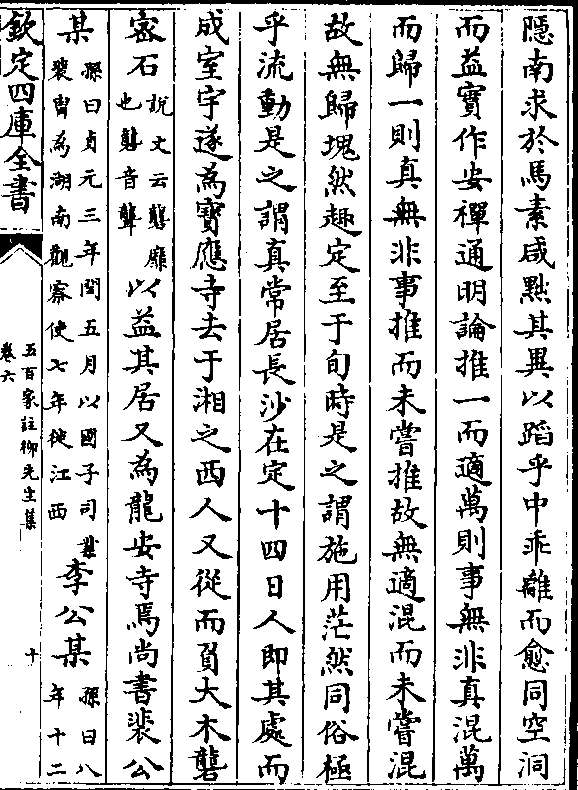 隱南求於馬素咸黜其異以蹈乎中乖離而愈同空洞
而益實作安禪通明論推一而適萬則事無非真混萬
而歸一則真無非事推而未嘗推故無適混而未嘗混
故無歸塊然趣定至于旬時是之謂施用茫然同俗極
乎流動是之謂真常居長沙在定十四日人即其處而
成室宇遂為寶應寺去于湘之西人又從而負大木礱
密石說文云礱䃺也礱音聾以益其居又為龍安寺焉尚書裴公
某孫曰貞元三年閏五月以國子司業裴胄為湖南觀察使七年徙江西李公某孫曰八年十二
欽定四庫全書
五百家註柳先生集
卷六
十